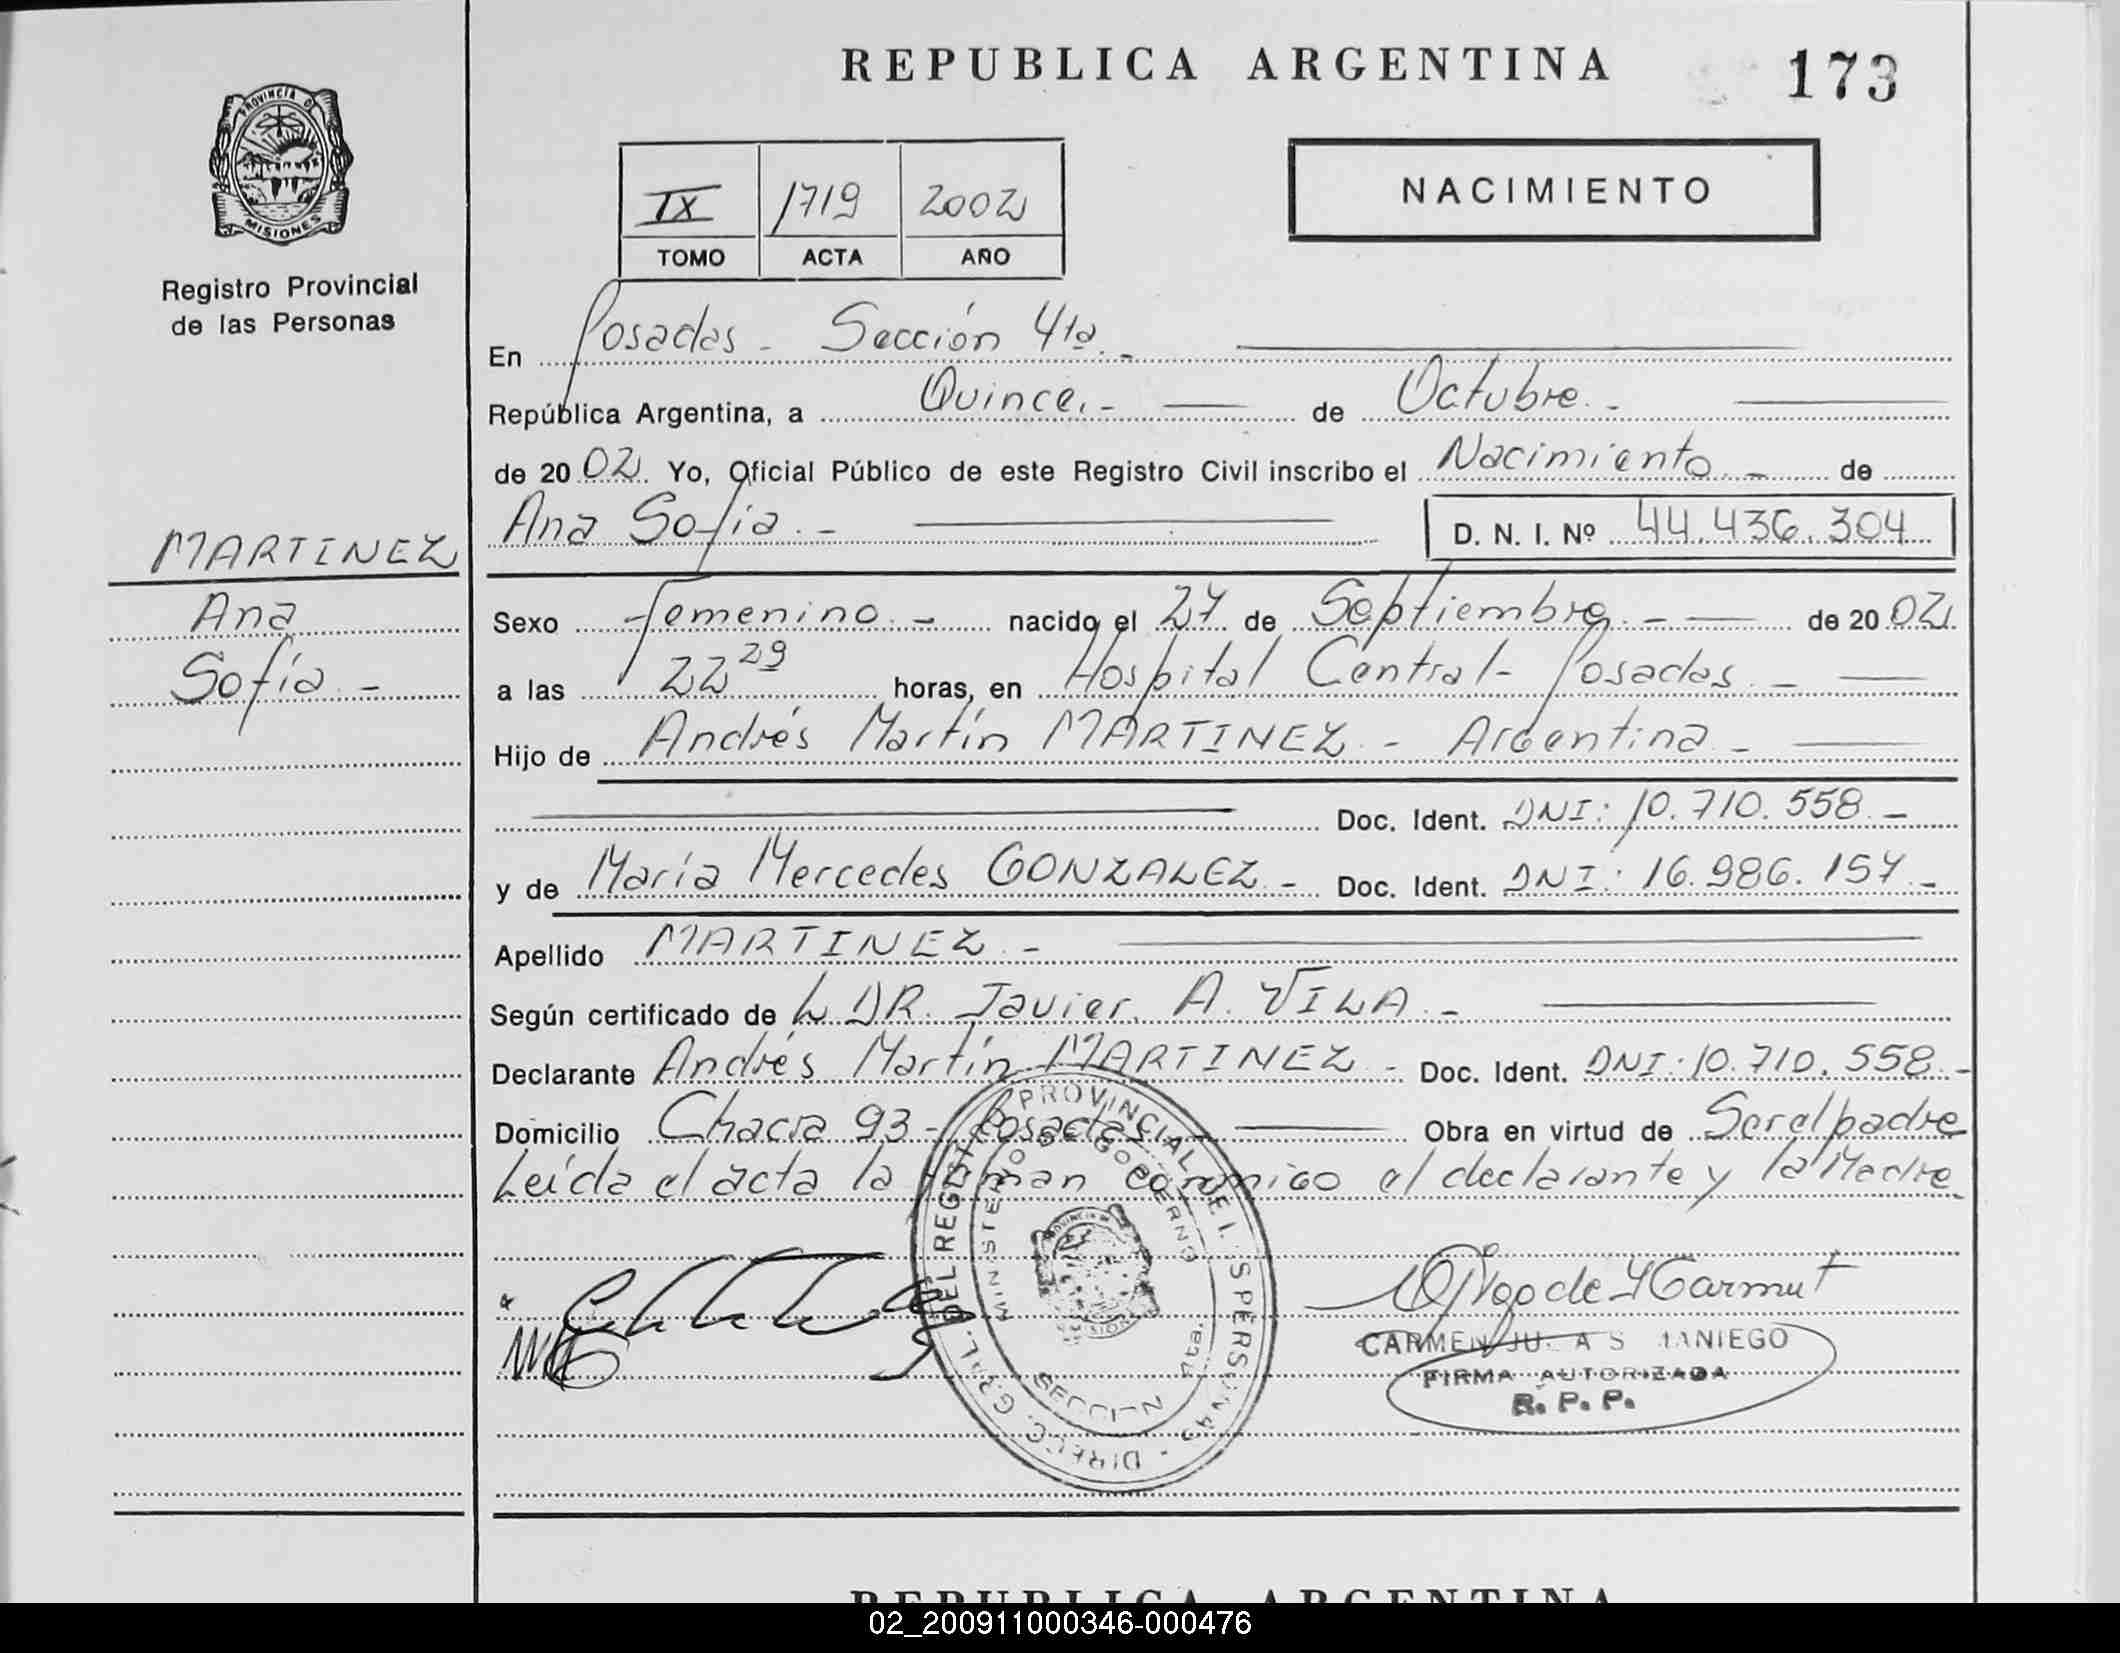 REPUBLICA ARGENTINA
173
PROVINCIA D
MISIONES
Registro Provincial
de las Personas
IX 1719 2002
TOMO ACTA AÑO
NACIMIENTO
En Posadas - Sección 4ta. -
República Argentina, a Quince. - de Octubre. -
de 20 02 Yo, Oficial Público de este Registro Civil inscribo el Nacimiento. - de
Ana Sofía. - D. N. I. Nº 44.436.304
MARTINEZ
Ana
Sofía. -
Sexo Femenino. - nacido el 27 de Septiembre. - de 20 02.
a las 22 29 horas, en Hospital Central - Posadas. -
Hijo de Andrés Martín MARTINEZ. - Argentina. -
Doc. Ident. DNI: 10.710.558. -
y de María Mercedes GONZALEZ. - Doc. Ident. DNI: 16.986.157. -
Apellido MARTINEZ. -
Según certificado de DR. Javier. A. VILA. -
Declarante Andrés Martín MARTINEZ. - Doc. Ident. DNI: 10.710.558. -
Domicilio Chacra 93 - Posadas. - Obra en virtud de Ser el padre
Leída el acta la firman conmigo el declarante y la Madre.
DIRECC. GRAL. DEL REGIST PROVINCIAL DE L S PERSONAS
MINISTERIO DE GOBIERNO
SECCION 4ta.
CARMEN JU A S MANIEGO
FIRMA AUTORIZADA
R. P. P.
REPUBLICA ARGENTINA
02_200911000346-000476